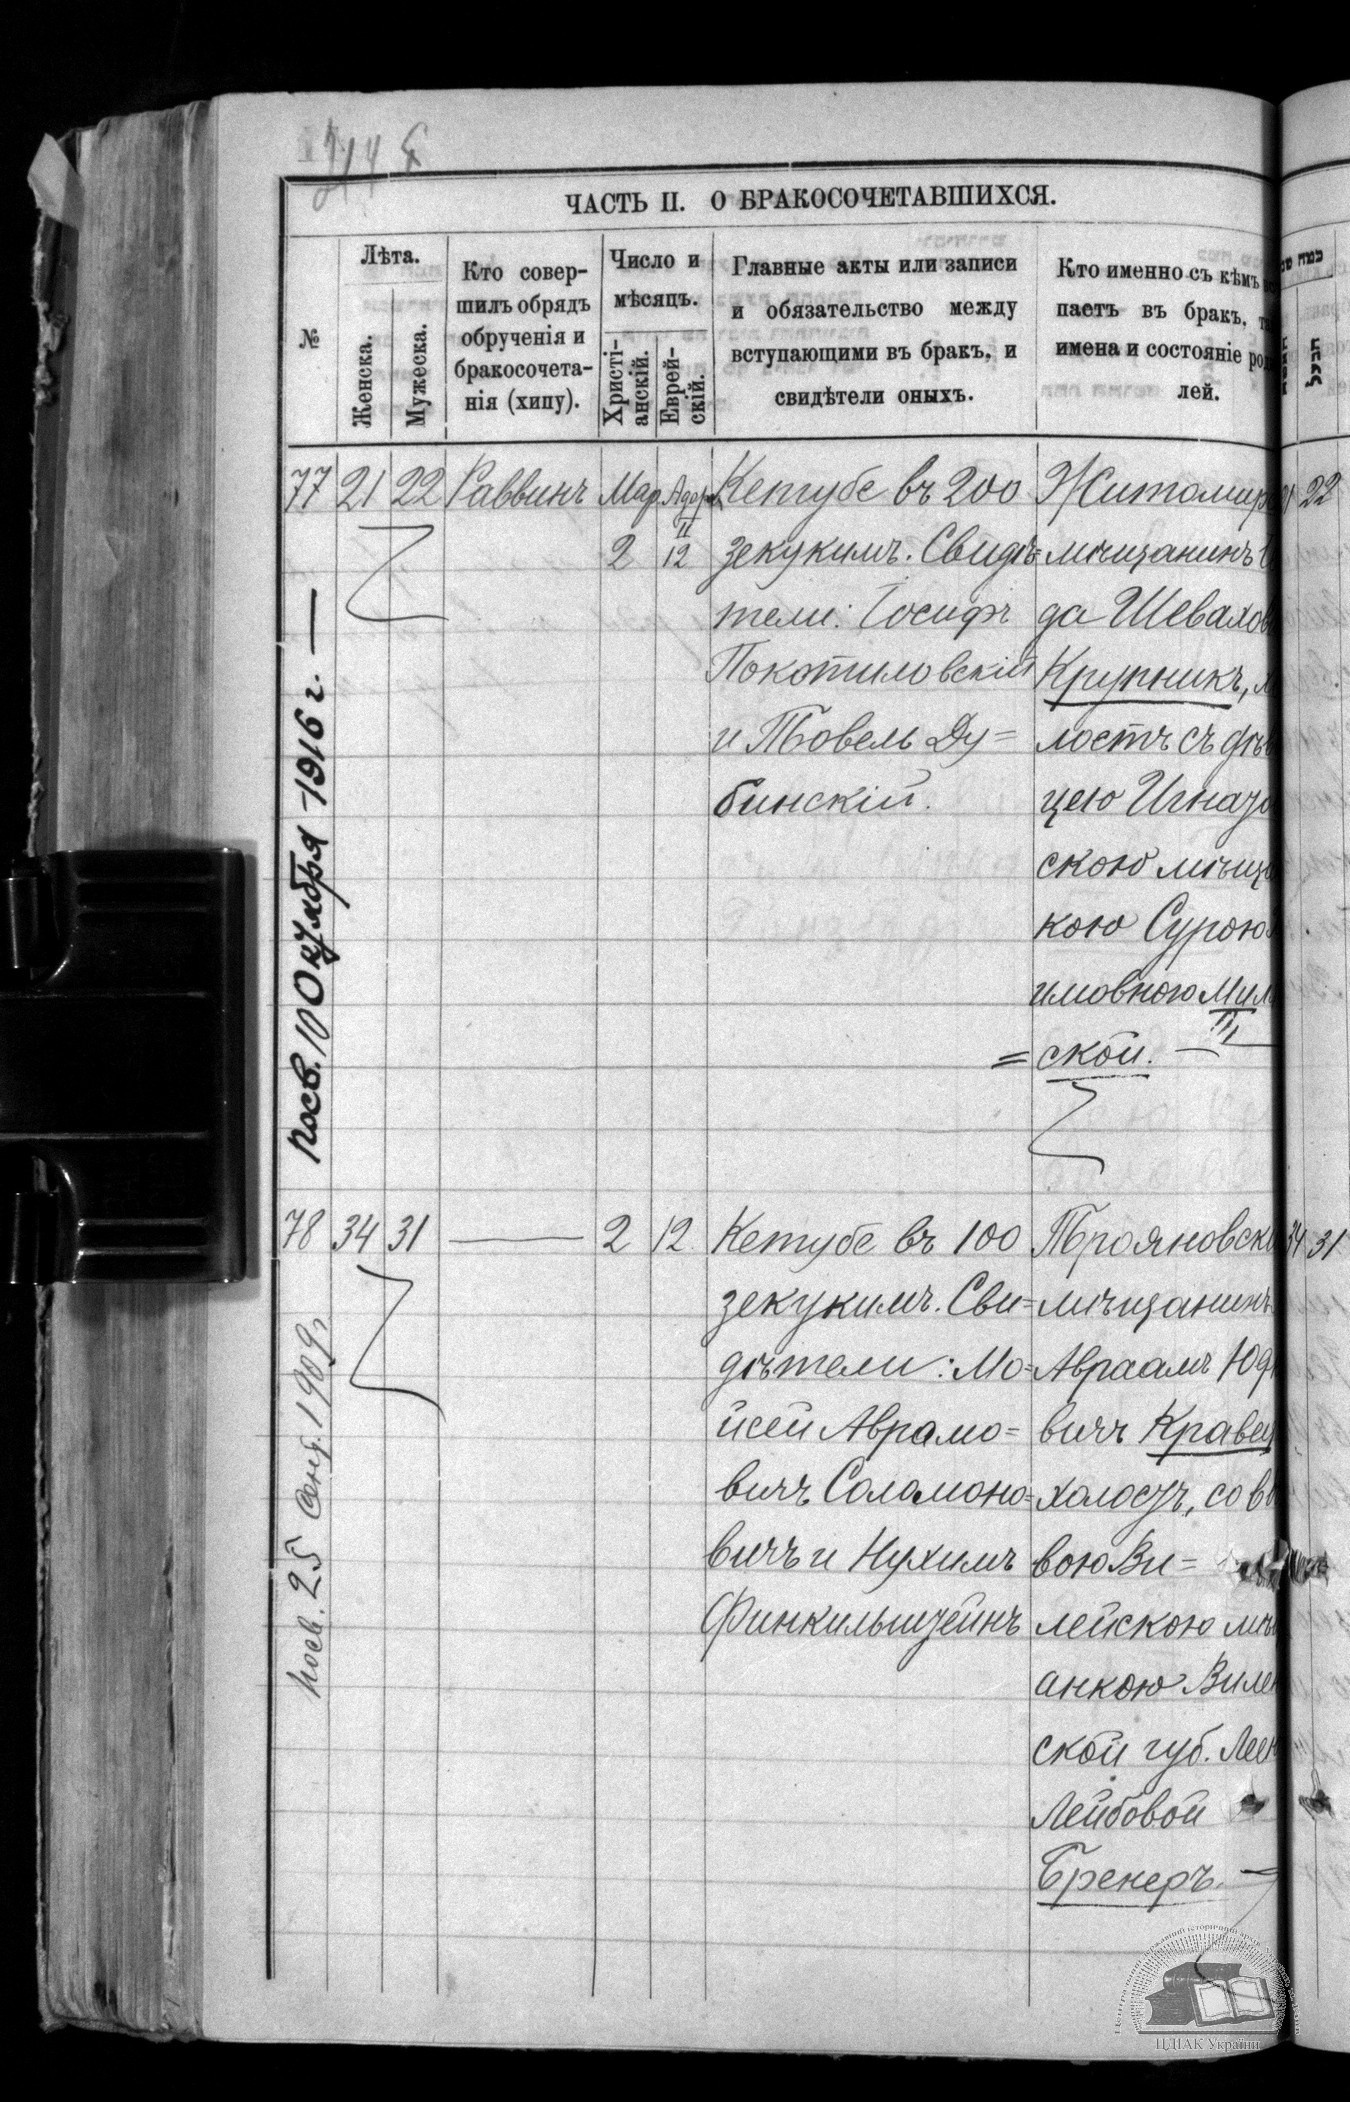 ЧАСТЬ II. О БРАКОСОЧЕТАВШИХСЯ.
№
Лѣта.
Женска.
Мужеска.
Кто совер-
шилъ обрядъ
обрученія и
бракосочета-
нія (хипу).
Число и
мѣсяцъ.
Христі-
анскій.
Еврей-
скій.
Главные акты или записи
и обязательство между
вступающими въ бракъ, и
свидѣтели оныхъ.
Кто именно съ кѣмъ
паетъ въ бракъ,
имена и состояніе
лей.
77 21 22 Раввинъ Мар. Адара II
2 12
Кетубе въ 200
зекукимъ. Свидѣ=
тели: Іосифъ
Покотиловскій
и Товель Ду=
бинскій.
Житомир
мѣщанинъ
да Шевахов
Крупникъ,
лостъ съ дѣв
цею Игназ
скою мѣща
кою Сурою
имовною Мил
= скои. —
Посв. 10 Октября 1916 г. —
78 34 31 — 2 12
Кетубе въ 100
зекукимъ. Сви=
дѣтели: Мо=
исеи Аврамо=
вичъ Соломоно=
вичъ и Нухимъ
Финкильштейнъ
Трояновскі
мѣщанинъ
Авраамъ Юд
вичъ Кравец
холостъ, со в
вою Ви=
лейскою мѣщ
анкою Вилен
ской губ. Леи
Лейбовой
Бренеръ. —
Посв. 25 Сент. 1909 г.
21 22
34 31
ЦДІАК України